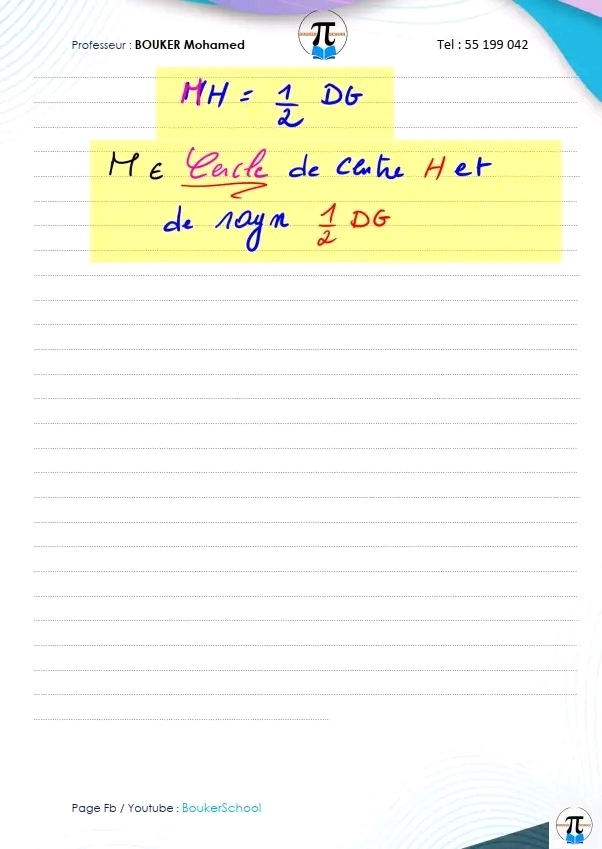 Professeur : BOUKER Mohamed
Tel : 55 199 042
MH = 1/2 DG
M ∈ Cercle de centre H et
de rayn 1/2 DG
Page Fb / Youtube : BoukerSchool